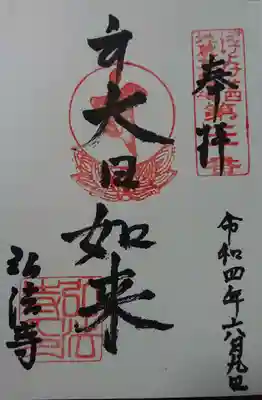 奉拝
令和四年六月九日
大日如来
弘法寺